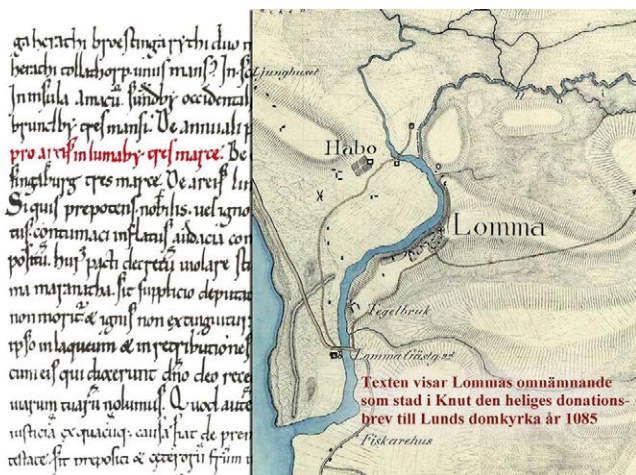 gaherathi broestinga rythi duo m
herathi tollathorp unus mans? In sc
In insula amacu. sundby occidental
brundby tres mansi. De annuali p
pro areis in lumaby tres marce. De
singaburg tres marce. De areis lun
Si quis prepotens. nobilis. uel igno
tus. contumaci inflatus audacia con
ma maranatha. sit supplicio deputat
non moritur & ignis non extinguitur
ipso in laqueum & in retributiones
cum eis qui dixerunt dno deo rece
uiarum tuarum nolumus. Quod aute
iusticia ex quacuq. causa fiat de prem
Ljunghuset
Habo
Lomma
Tegelbruk
Lomma Gästg:gd
Texten visar Lommas omnämnande
som stad i Knut den heliges donations-
brev till Lunds domkyrka år 1085
Fiskarehus